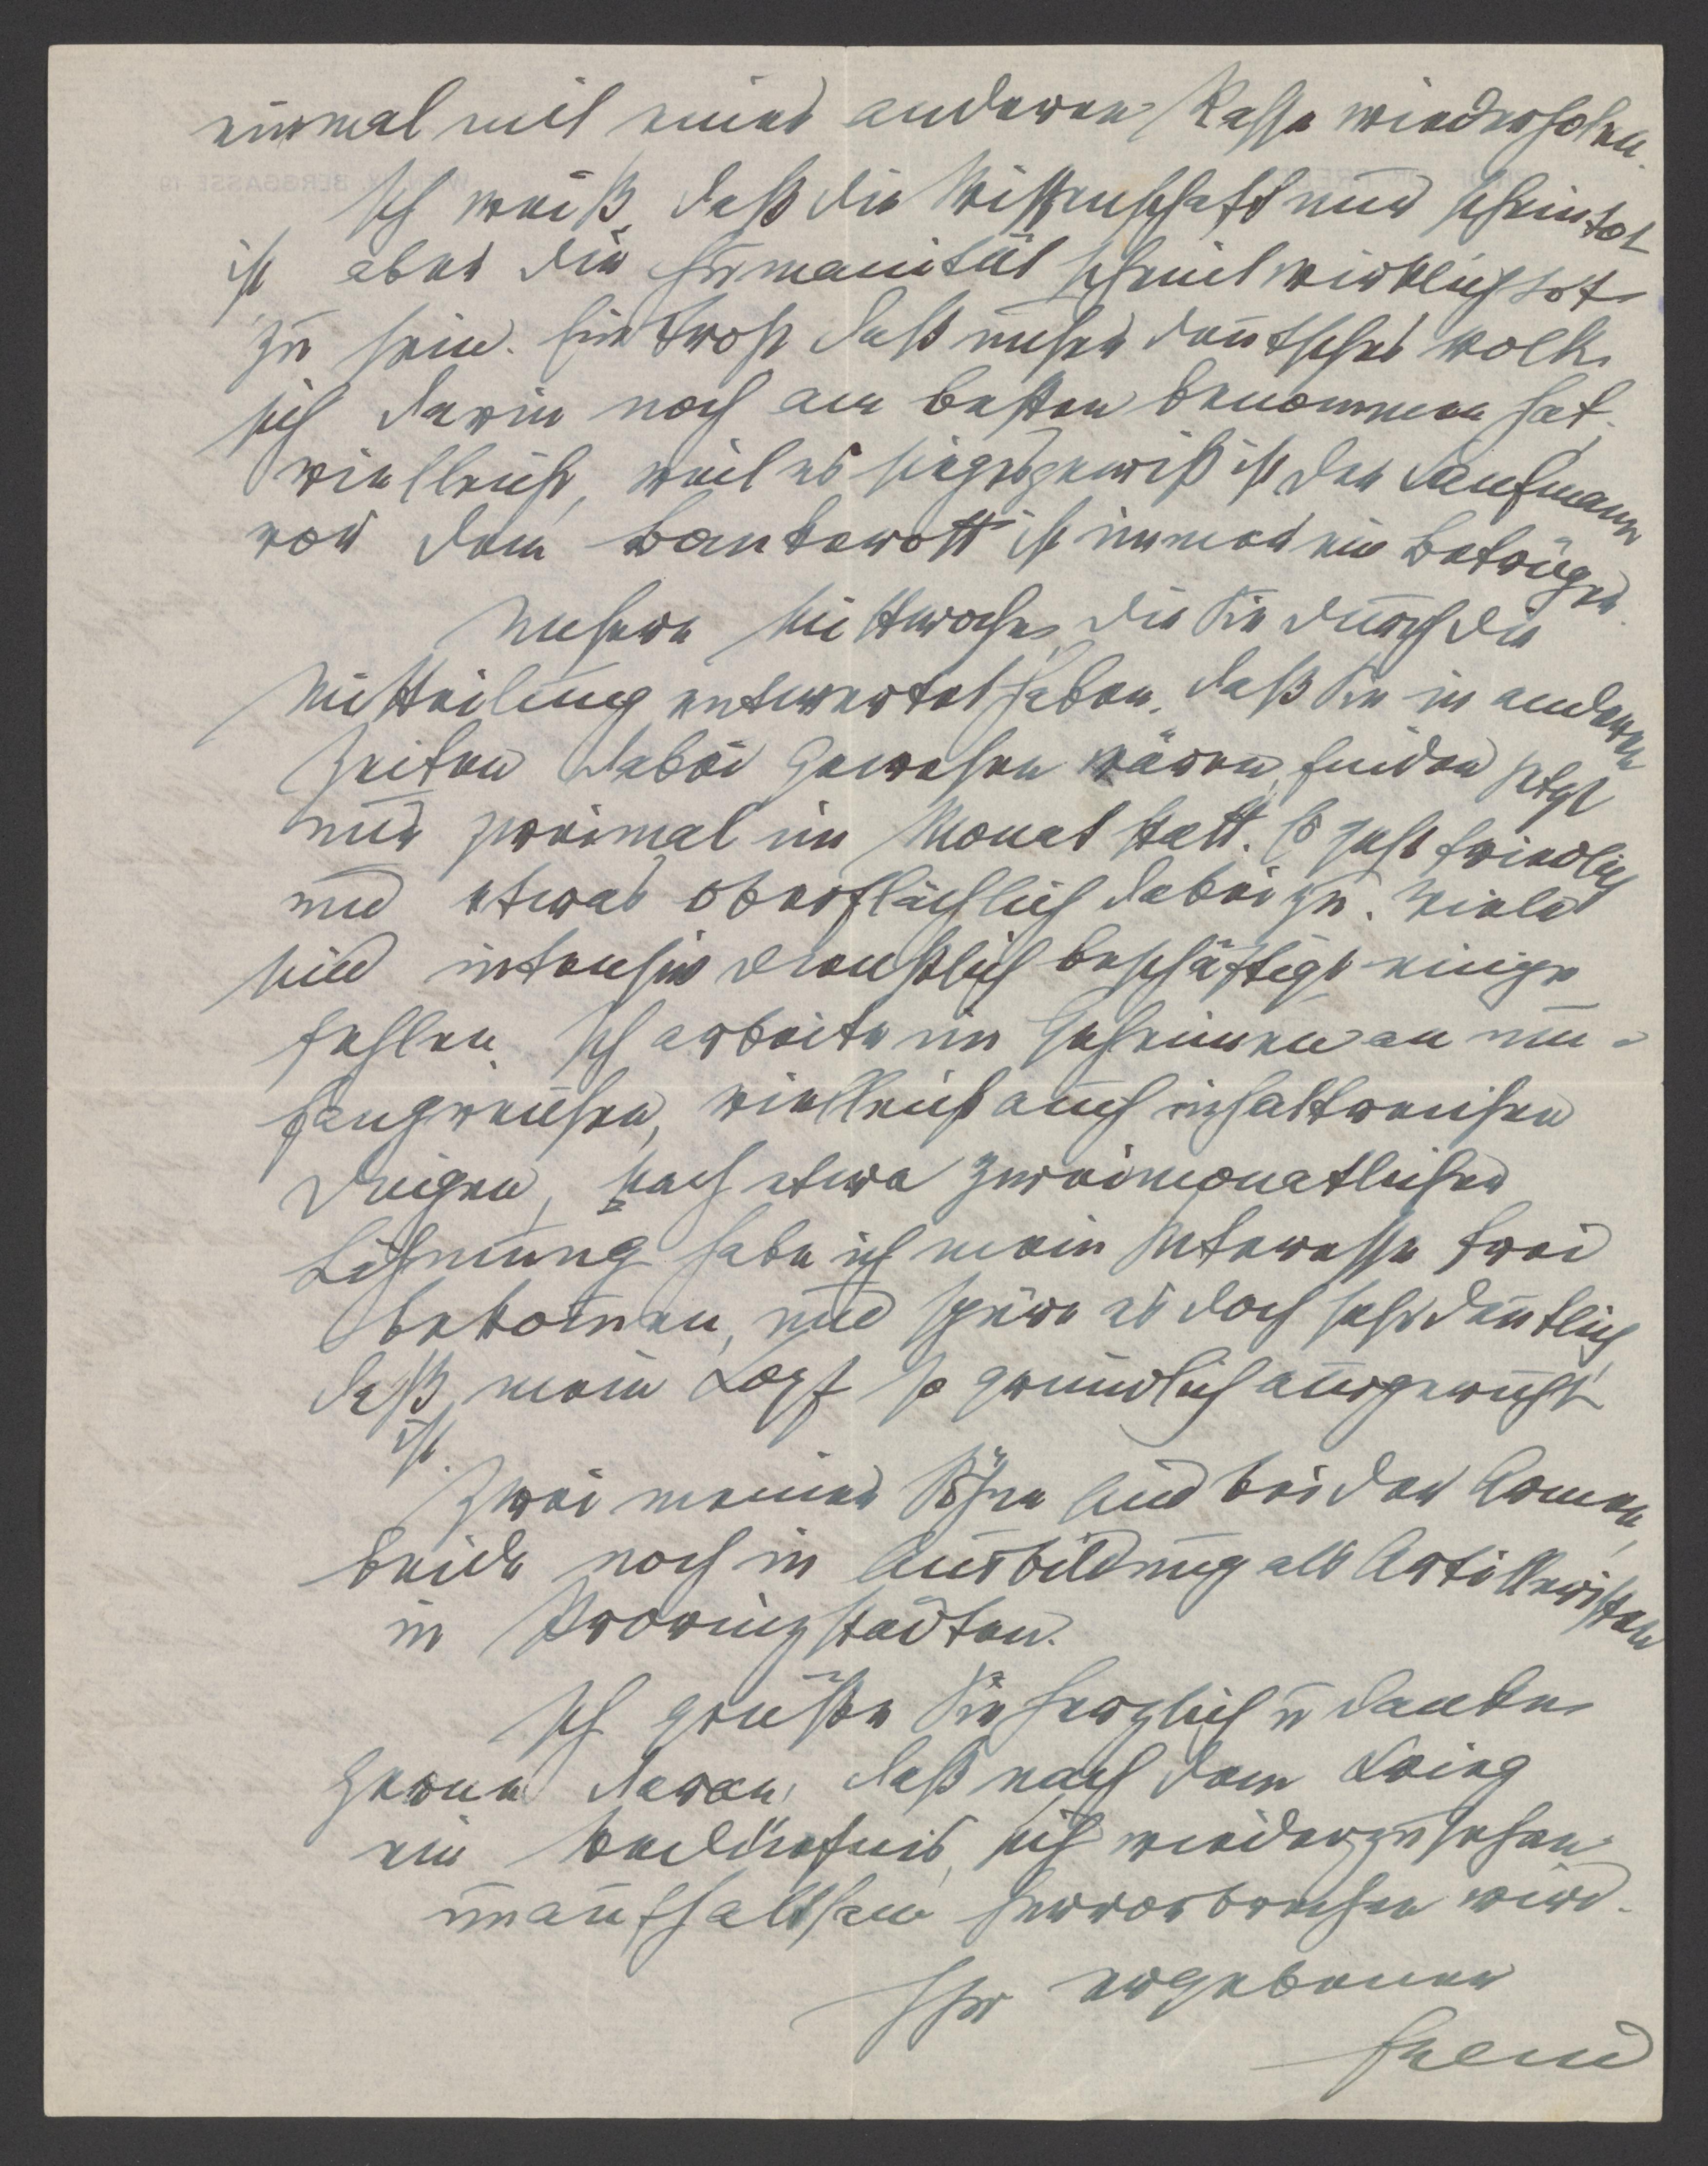 einmal mit einer anderen Rasse wiederholen.
Ich weiß, daß die Wissenschaft nur scheintot
ist, aber die Humanität scheint wirklich tot
zu sein. Ein Trost, daß unser deutsches Volk
sich darin noch am besten benommen hat,
vielleicht, weil es siegesgewiß ist. Der Kaufmann
vor dem Bankerott ist immer ein Betrüger.
Unsere Mittwoche, die Sie durch die
Mitteilung entwertet haben, daß Sie in anderen
Zeiten dabei gewesen wären, finden jetzt
nur zweimal im Monat statt. Es geht friedlich
und etwas oberflächlich dabei zu. Viele
sind intensiv dienstlich beschäftigt, einige
fehlen. Ich arbeite im Geheimen an um-
fangreichen, vielleicht auch inhaltreichen
Dingen, nach etwa zweimonatlicher
Lähmung habe ich mein Interesse frei
bekommen, und spüre es doch sehr deutlich,
daß mein Kopf so gründlich ausgeruht
ist.
Zwei meiner Söhne sind bei der Armee,
beide noch in Ausbildung als Artilleristen
in Provinzstädten.
Ich grüße Sie herzlich u danke
gerne daran, daß nach dem Krieg
ein Bedürfnis, sich wiederzusehen
unaufhaltsam hervorbrechen wird.
Ihr ergebener
Freud
WIEN, IX. BERGGASSE 19